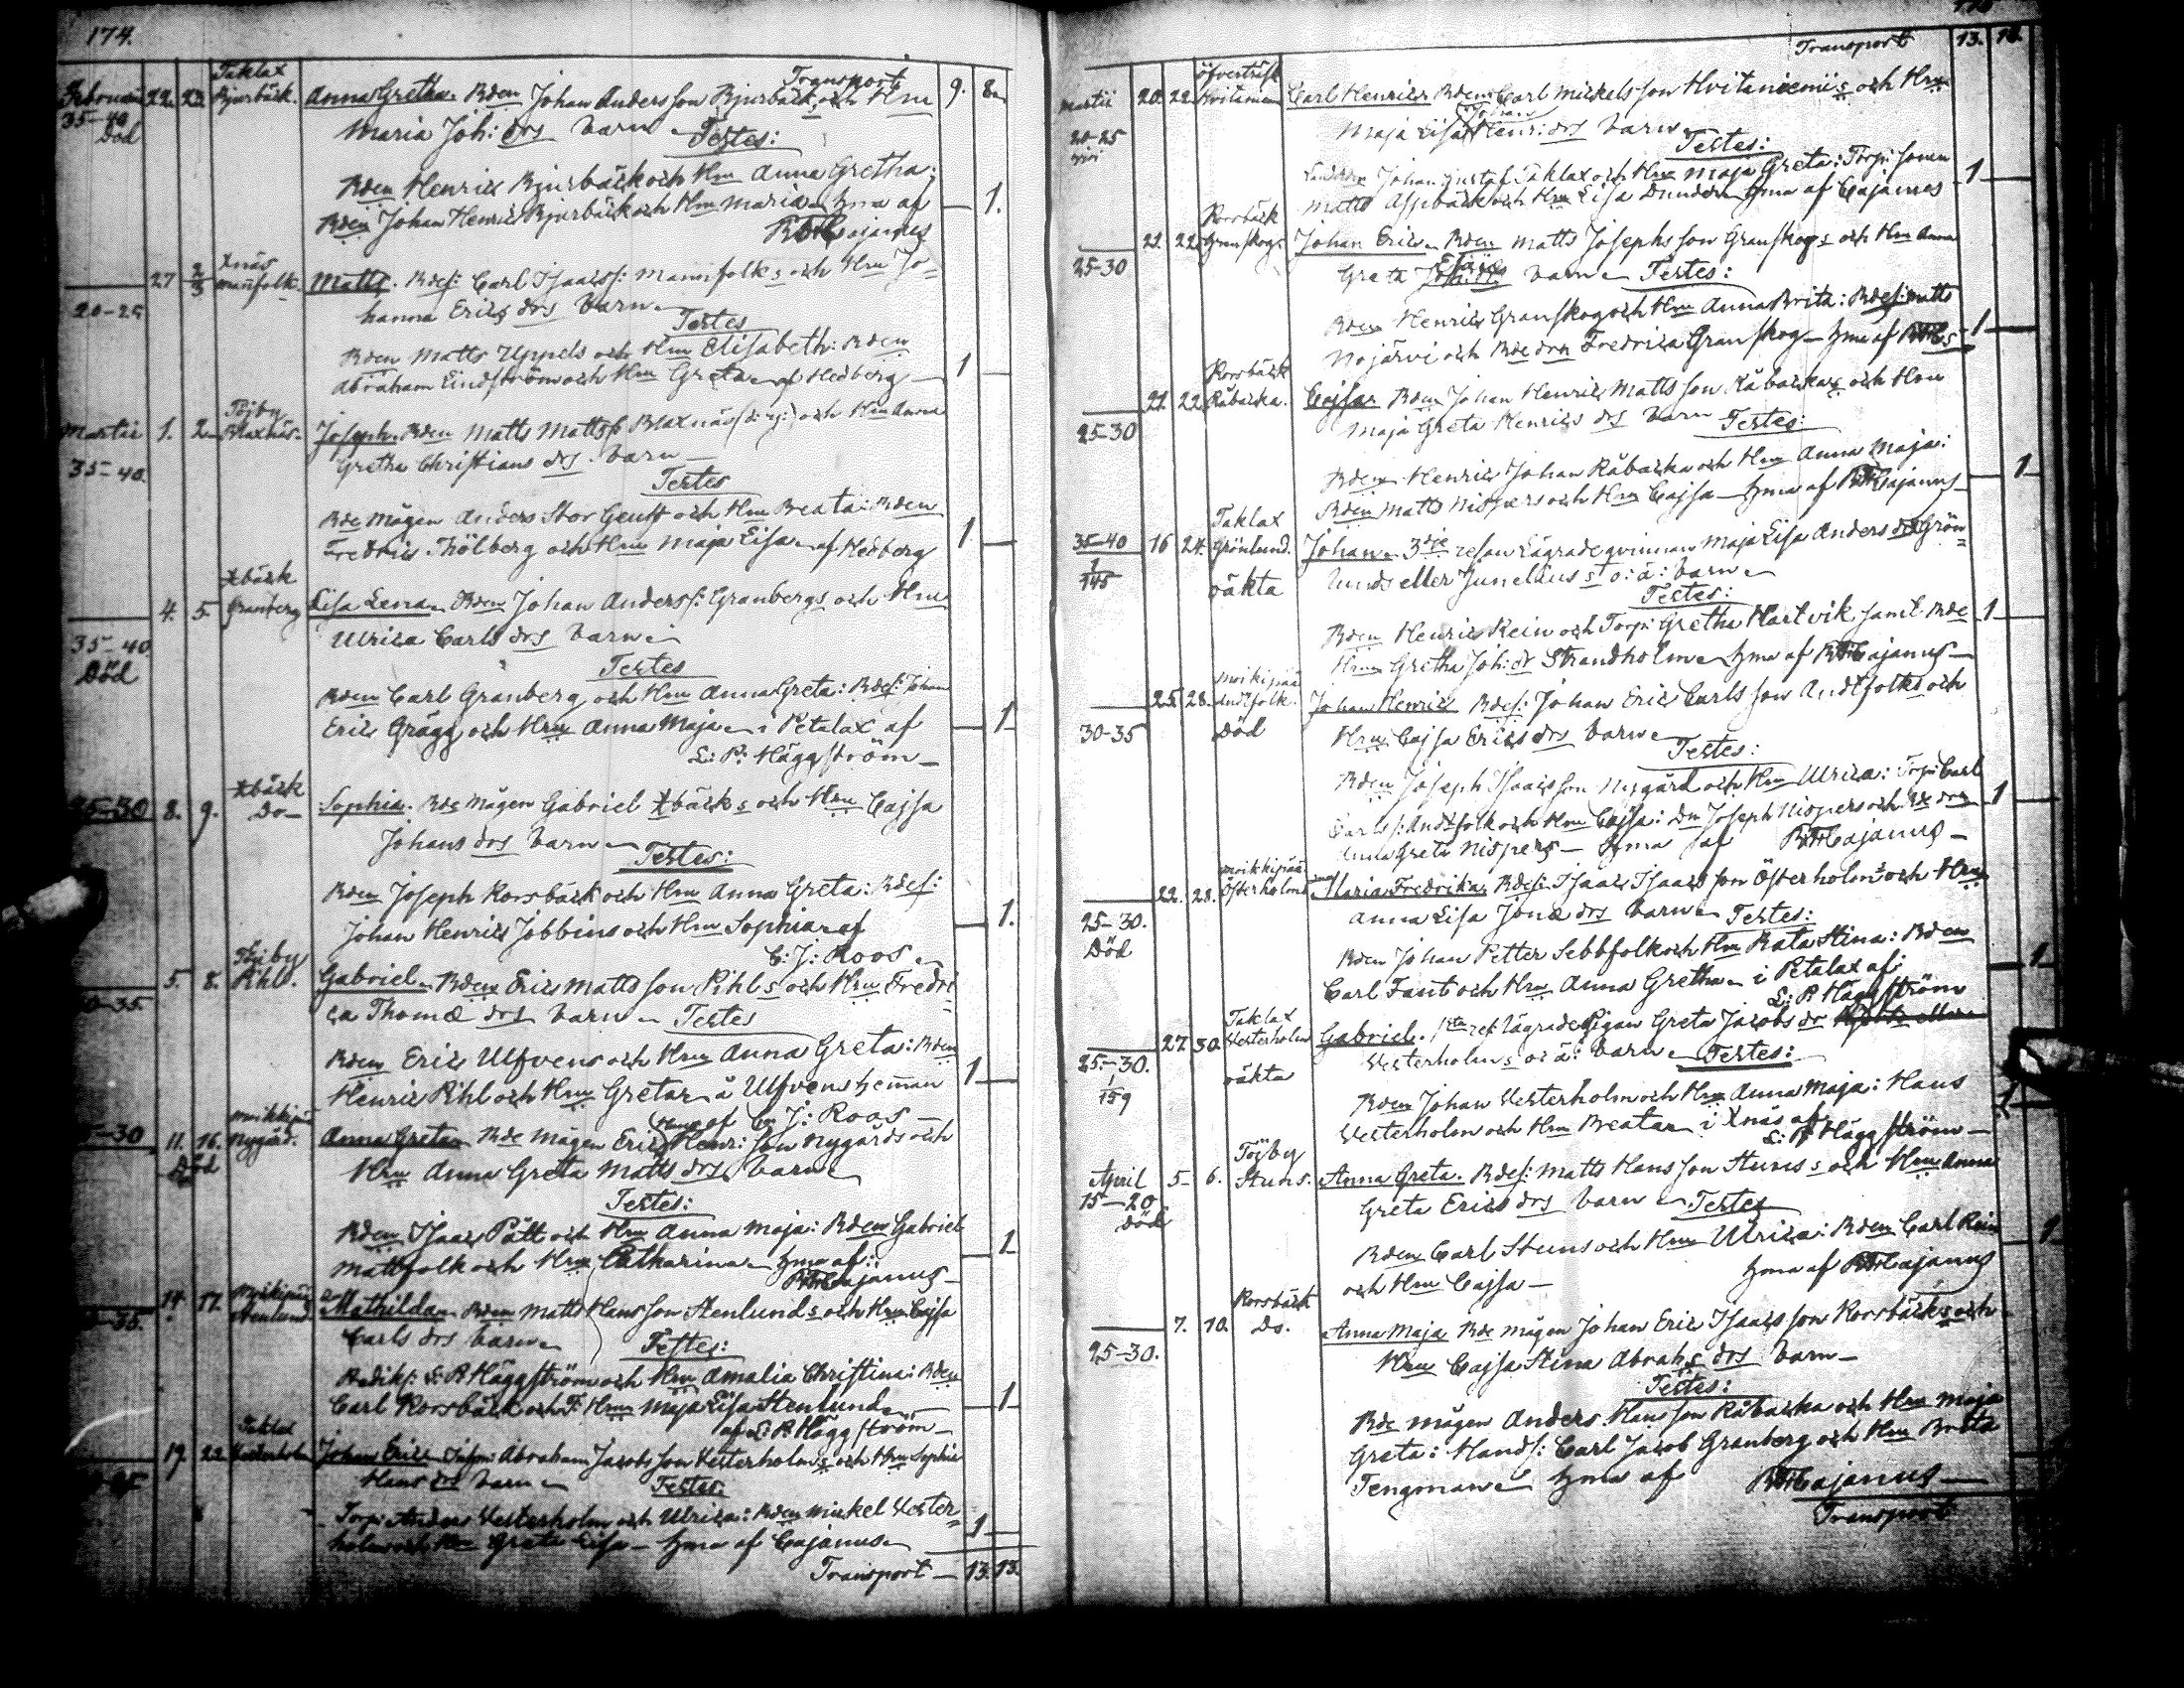 174.
Transport 9. 8.
Februari 22. 23. Taklax Bjurbäck. Anna Gretha. Bden Johan Andersson Bjurbäck och Hm
35-40 Död
Maria Joh: drs barn
Testes:
Bden Henric Bjurbäck och Hm Anna Gretha:
Bden Johan Henric Bjurbäck och Hm Maria hma af 1.
Cajanus
27 2/3 Xnäs Manfolk. Matts. Bdes: Carl Isaacs: Mannfolks och Hm Jo=
20-25
hanna Erics drs barn
Testes
Bden Matts Uppels och Hm Elisabeth: Bden
Abraham Lindström och Hm Greta af Hedberg 1
Martii 1. 2. Töjby Blaxnäs. Joseph. Bden Matts Mattss Blaxnäs och Hm Anna
35-40.
Gretha Christians drs. barn
Testes
Bde Mågen Anders Stor Geust och Hm Beata: Bden
Fredric Thölberg och Hm Maja Lisa af Hedberg 1
4. 5. Xbäck Granberg Lisa Lena Bden Johan Anderss: Granbergs och Hm
35-40 Död
Ulrica Carls drs barn
Testes
Bden Carl Granberg och Hm Anna Greta: Bdes: Johan
Eric Grägg och Hm Anna Maja i Petalax af 1
L: P: Häggström
25-30 8. 9. Xbäck Do Sophia. Bde Mågen Gabriel Xbäcks och Hm Cajsa
Johans drs barn
Testes:
Bden Joseph Korsbäck och Hm Anna Greta: Bdes:
Johan Henric Jobbins och Hm Sophia af 1.
C: J: Roos
5. 8. Töjby Pihl. Gabriel Bden Eric Mattsson Pihls och Hm Fredri=
30-35.
ca Thomæ drs barn Testes
Bden Eric Ulfvens och Hm Anna Greta: Bden
Henric Pihl och Hm Greta å Ulfvens heman 1
hma af C: J: Roos
11. 16. Moikipää Nygård. Anna Greta Bde Mågen Eric Henr: son Nygårds och
Död
Hm Anna Greta Matts drs barn
Testes:
Bden Isaac Pått och Hm Anna Maja: Bden Gabriel
Mattfolk och Hm Catharina hma af: 1
Cajanus
14. 17. Moikipää Stenlund Mathilda Bden Matts Hansson Stenlunds och Hm Cajsa
Carls drs barn Testes:
L: P. Häggström och Hm Amalia Christina: Bden
Carl Korsbäck och Hm Maja Lisa Stenlund 1
af L: P. Häggström
19. 22. Taklax Westerholm Johan Eric Abraham Jacobsson Westerholms och Hm Sophia
Hans drs barn Testes
Torp: Anders Westerholm och Ulrica: Bden Mickel Wester=
holm och Hm Greta Lisa hma af Cajanus 1
Transport 13. 13.
Transport 13. 13.
Martii 20. 22. Öfverträsk Hvitaniemi Carl Henric Bden Carl Mickelsson Hvitaniemis och Hm
20-25
Maja Lisa Johan Henr: drs barn
Testes:
Johan Gustaf Taklax och Hm Maja Greta: Torp: sonen
Matts Aspbäck och Hm Lisa Dunder hma af Cajanus 1
21. 22. Korsbäck Granskog. Johan Eric Bden Matts Josephsson Granskogs och Hm Anna
25-30
Greta barn Testes:
Bden Henric Granskog och Hm Anna Brita: Bdes: Matts
Nojärvi och Bde drn Fredrica Granskog hma af 1
21. 22. Korsbäck Råbacka. Cajsa Bden Johan Henric Mattsson Råbackas och Hm
25-30
Maja Greta Henrics drs barn Testes:
Bden Henric Johan Råbacka och Hm Anna Maja:
Bden Matts Nispers och Hm Cajsa hma af Cajanus 1
16 24. Taklax Grönlund. Johan 3dje resan Lägrade qvinnan Maja Lisa Anders dr Grön=
35-40
1/145 oäkta
lunds eller Junelius's o: ä: barn
Testes:
Bden Henric Rein och Torp: Gretha Hartvik samt Bde 1
Hm Gretha Joh: dr Strandholm hma af Cajanus
25. 28. Moikipää Andtfolk. Johan Henric Bdes: Johan Eric Carlsson Andtfolks och
30-35 Död
Hm Cajsa Erics drs barn
Testes:
Bden Joseph Isaacsson Nygård och Hm Ulrica: Torp: Carl
Carls: Andtfolk och Hm Cajsa: Joseph Nispers och 1
Anna Greta Nispers hma af Cajanus
22. 28. Moikkipää Österholm Maria Fredrika Bdes: Isaac Isaacsson Österholms och Hm
25-30. Död
Anna Lisa Jonæ drs barn Testes:
Bden Johan Petter Sebbfolk och Hm Kata Stina: Bden
Carl Fant och Hm Anna Gretha i Petalax af: 1
L: P. Häggström
27 30. Taklax Westerholm Gabriel. 1sta res: Lägrade Pigan Greta Jacobs dr
25-30. 1/159 oäkta
Westerholms o: ä: barn Testes:
Bden Johan Westerholm och Hm Anna Maja: Hans
Westerholm och Hm Beata i Xnäs af 1
L: P. Häggström
April 5. 6. Töjby Stuns. Anna Greta. Bdes: Matts Hansson Stuns s och Hm Anna
15-20 död
Greta Erics drs barn Testes
Bden Carl Stuns och Hm Ulrica: Bden Carl Rein 1
och Hm Cajsa hma af Cajanus
7. 10. Korsbäck Do. Anna Maja Bde Mågen Johan Eric Isaacsson Korsbäcks och
25-30.
Hm Cajsa Stina Abrah s drs barn
Testes:
Bde Mågen Anders Hansson Råbacka och Hm Maja
Greta: Hands: Carl Jacob Granberg och Hm Brita
Tengman hma af Cajanus
Transport